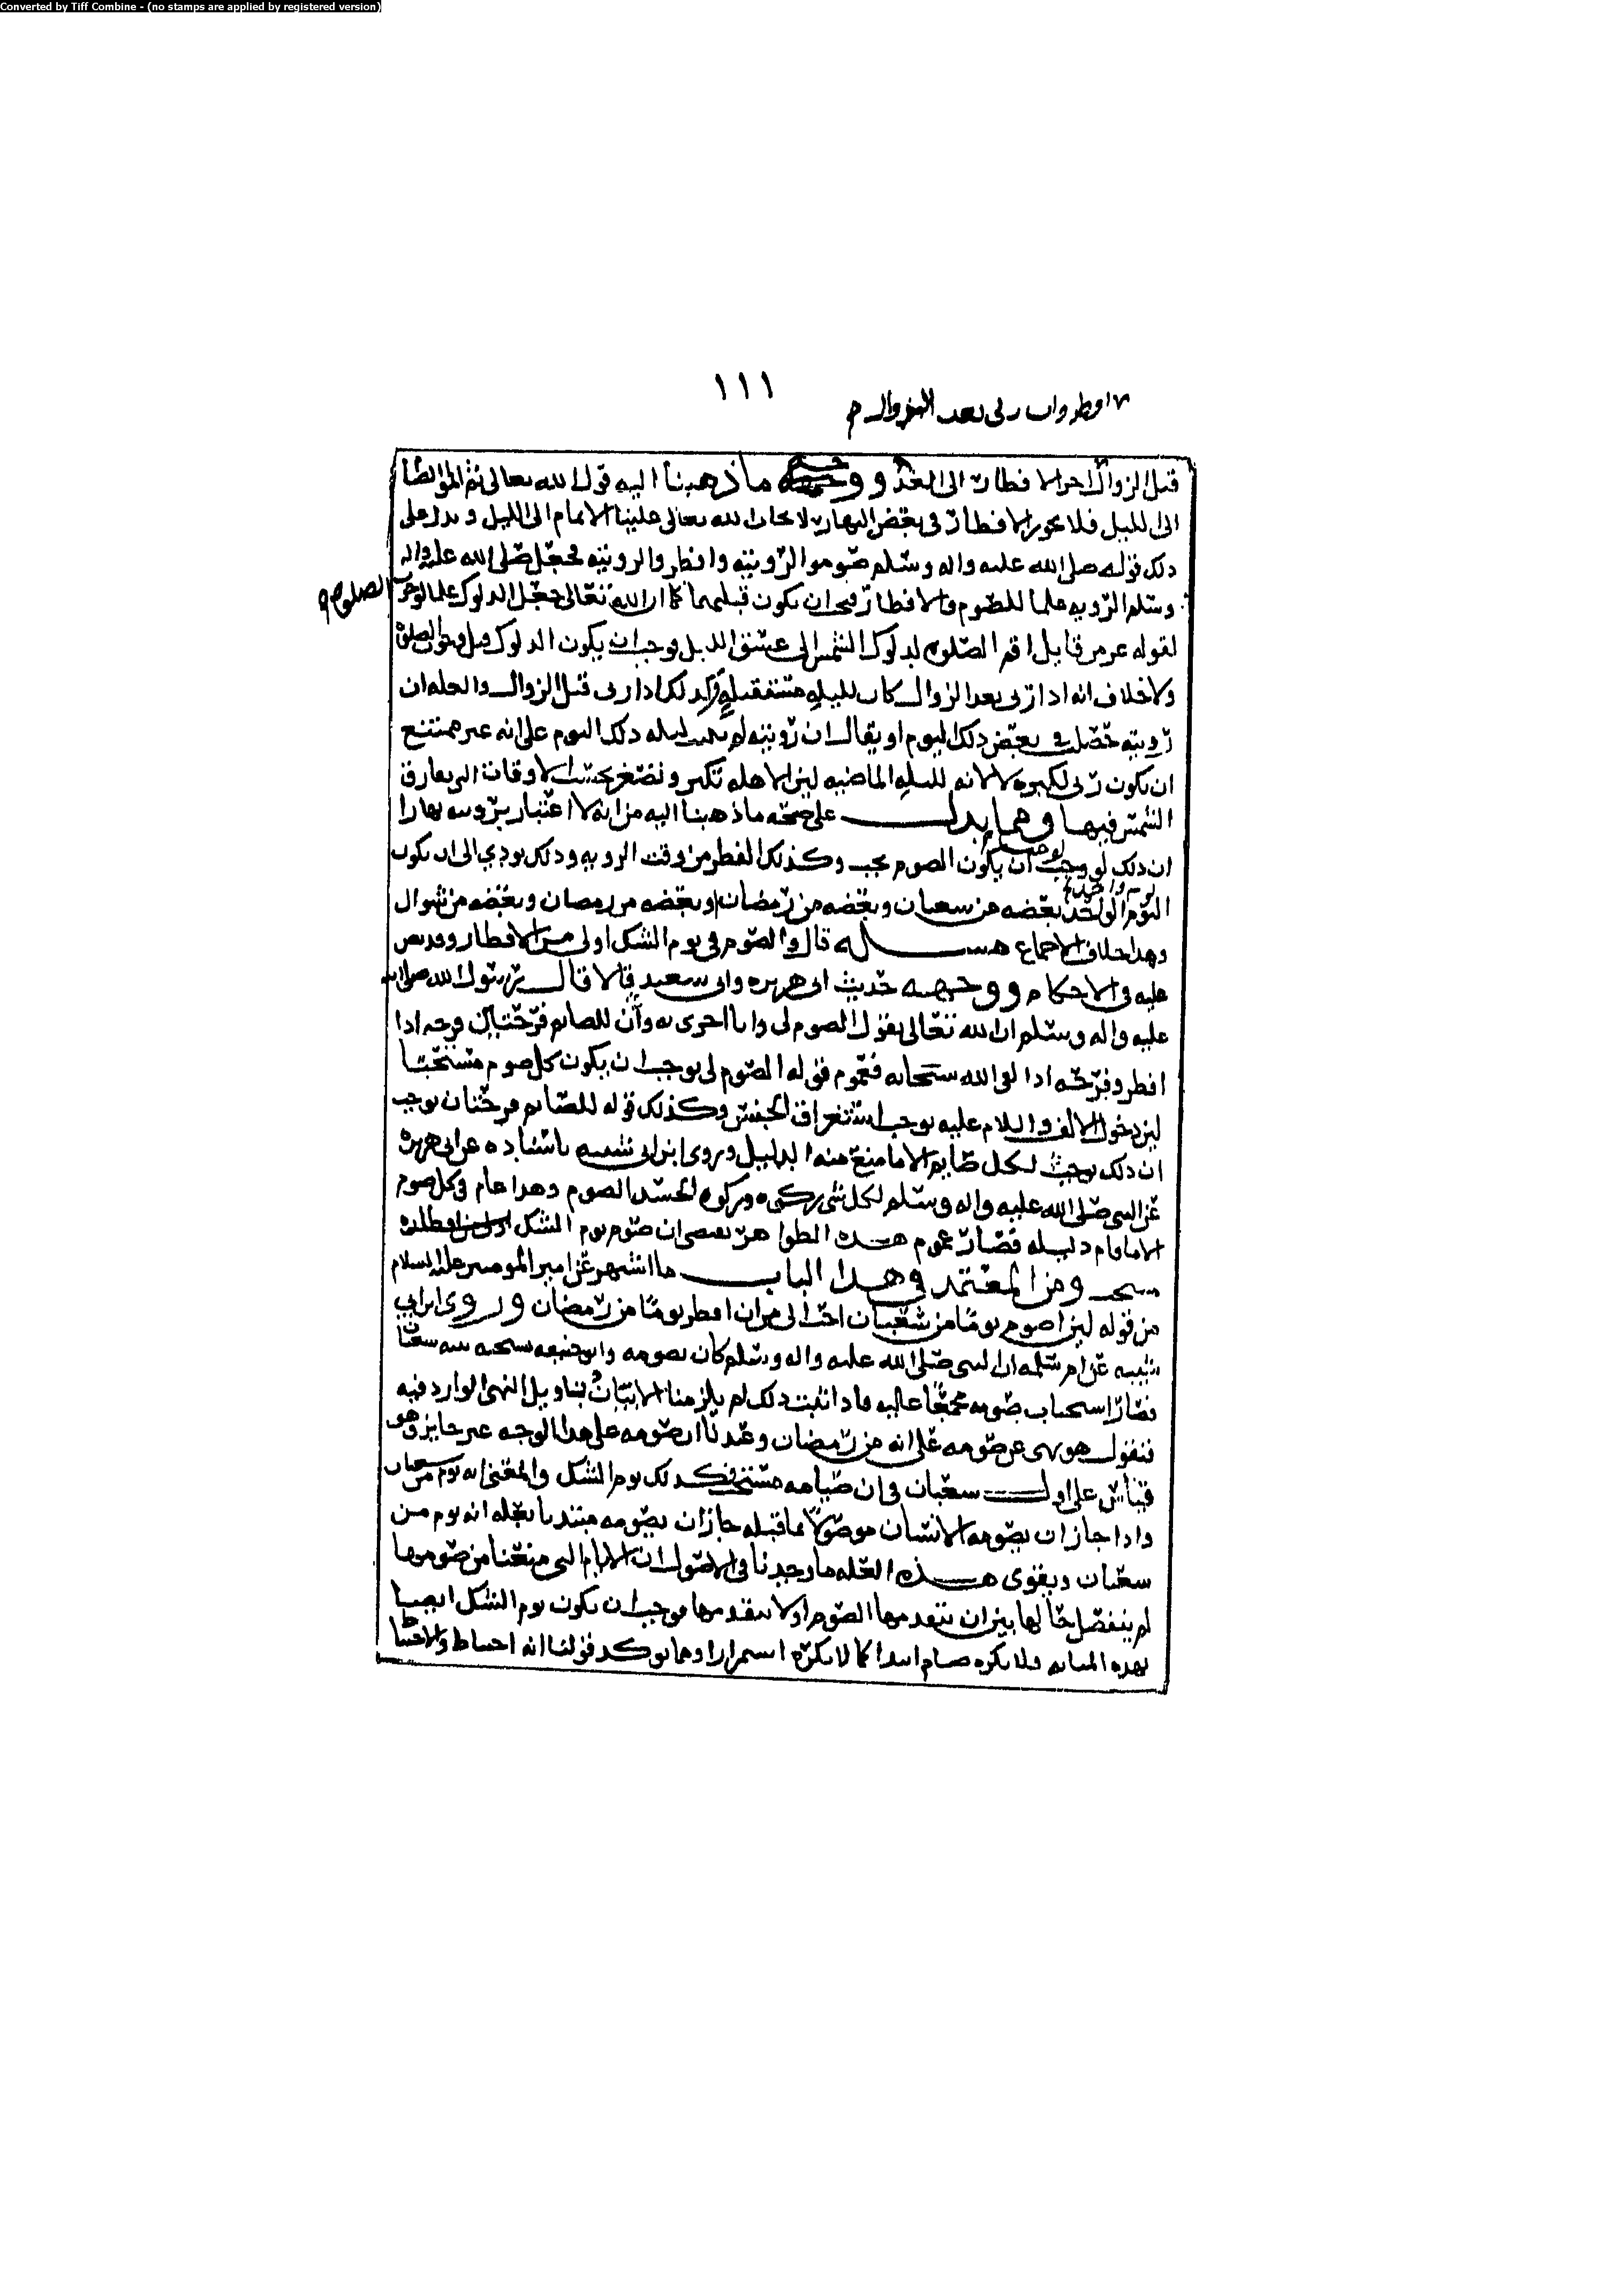 Converted by Tiff Combine - (no stamps are applied by registered version)
١١١
افطر وان رىى بعد الزوال م
قبل الزوال اخر الافطار الى الغد ووجه ما ذهبنا اليه قول الله تعالى ثم اتموا الصيام
الى الليل فلا يجوز الافطار في بعض النهار لايجاب الله تعالى علينا الاتمام الى الليل ويدل على
ذلك قوله صلى الله عليه واله وسلم صوموا لرؤيته وافطروا لرؤيته فجعل صلى الله عليه واله
وسلم الرؤيه علما للصوم والافطار فيجب ان يكون قبلهما كما ان الله تعالى جعل الدلوك علما لوجوب الصلوة
لقوله عز من قايل اقم الصلوة لدلوك الشمس الى غسق الليل وجب ان يكون الدلوك قبل وجوب الصلوة
ولا خلاف انه اذا رئي بعد الزوال كان لليله مستقبله فكذلك اذا رئي قبل الزوال والعله ان
رؤيته حصلت في بعض ذلك اليوم او يقال ان رؤيته لم تكن ليله ذلك اليوم على انه غير ممتنع
ان يكون رئي لكبره لا لانه لليله الماضيه لان الاهله تكبر وتصغر بحسب الاوقات التي يفارق
الشمس فيها ومما يدل على صحة ما ذهبنا اليه من انه لا اعتبار برؤيته نهارا
ان ذلك لو وجب لوجب ان يكون الصوم يجب وكذلك الفطر من وقت الرؤيه وذلك يؤدي الى ان يكون
اليوم الواحد بعضه من شعبان وبعضه من رمضان او بعضه من رمضان وبعضه من شوال
وهذا خلاف الاجماع مسألة قال والصوم في يوم الشك اولى من الافطار وقد نص
عليه في الاحكام ووجهه حديث ابي هريره وابي سعيد قالا قال رسول الله صلى الله
عليه واله وسلم ان الله تعالى يقول الصوم لي وانا اجزي به وان للصائم فرحتين فرحه اذا
افطر وفرحه اذا لقي الله سبحانه فعموم قوله الصوم لي يوجب ان يكون كل صوم مستحبا
لان دخول الالف واللام عليه يوجب استغراق الجنس وكذلك قوله للصائم فرحتان يوجب
ان ذلك يوجب لكل صايم الا ما منع منه الدليل وروى ابن ابي شيبه باسناده عن ابي هريره
عن النبي صلى الله عليه واله وسلم لكل شي زكوه وزكوه الجسد الصوم وهذا عام في كل صوم
الا ما قام دليله فصار عموم هذه الظواهر يقتضي ان صوم يوم الشك
مستحب ومن المعتمد في هذا الباب ما اشتهر عن امير المومنين عليه السلام
من قوله لان اصوم يوما من شعبان احب الي من ان افطر يوما من رمضان وروى ابن ابي
شيبه عن ام سلمه ان النبي صلى الله عليه واله وسلم كان يصومه وابو حنيفه يستحبه بنيه شعبان
فصار استحباب صومه مجمعا عليه فاذا ثبت ذلك لم يلزمنا الا بتاويل النهي الوارد فيه
فنقول هو نهى عن صومه على انه من رمضان وعندنا ان صومه على هذا الوجه غير جايز وهو
قياس على اول شعبان في ان صيامه مستحب فكذلك يوم الشك والمعنى انه يوم من شعبان
واذا جاز ان يصومه الانسان موصولا بما قبله جاز ان يصومه مبتديا بعله انه يوم من
شعبان ويقوي هذه العله ما وجدنا في الاصول ان الايام التي منعنا من صومها
لم ينفصل حالها بين ان يتقدمها الصوم او لا يتقدمها فوجب ان يكون يوم الشك ايضا
بهذه المثابه فلا يكره صيامه ابتدا كما لا يكره استمرارا ومما يوكد قولنا انه احتياط والاحتياط